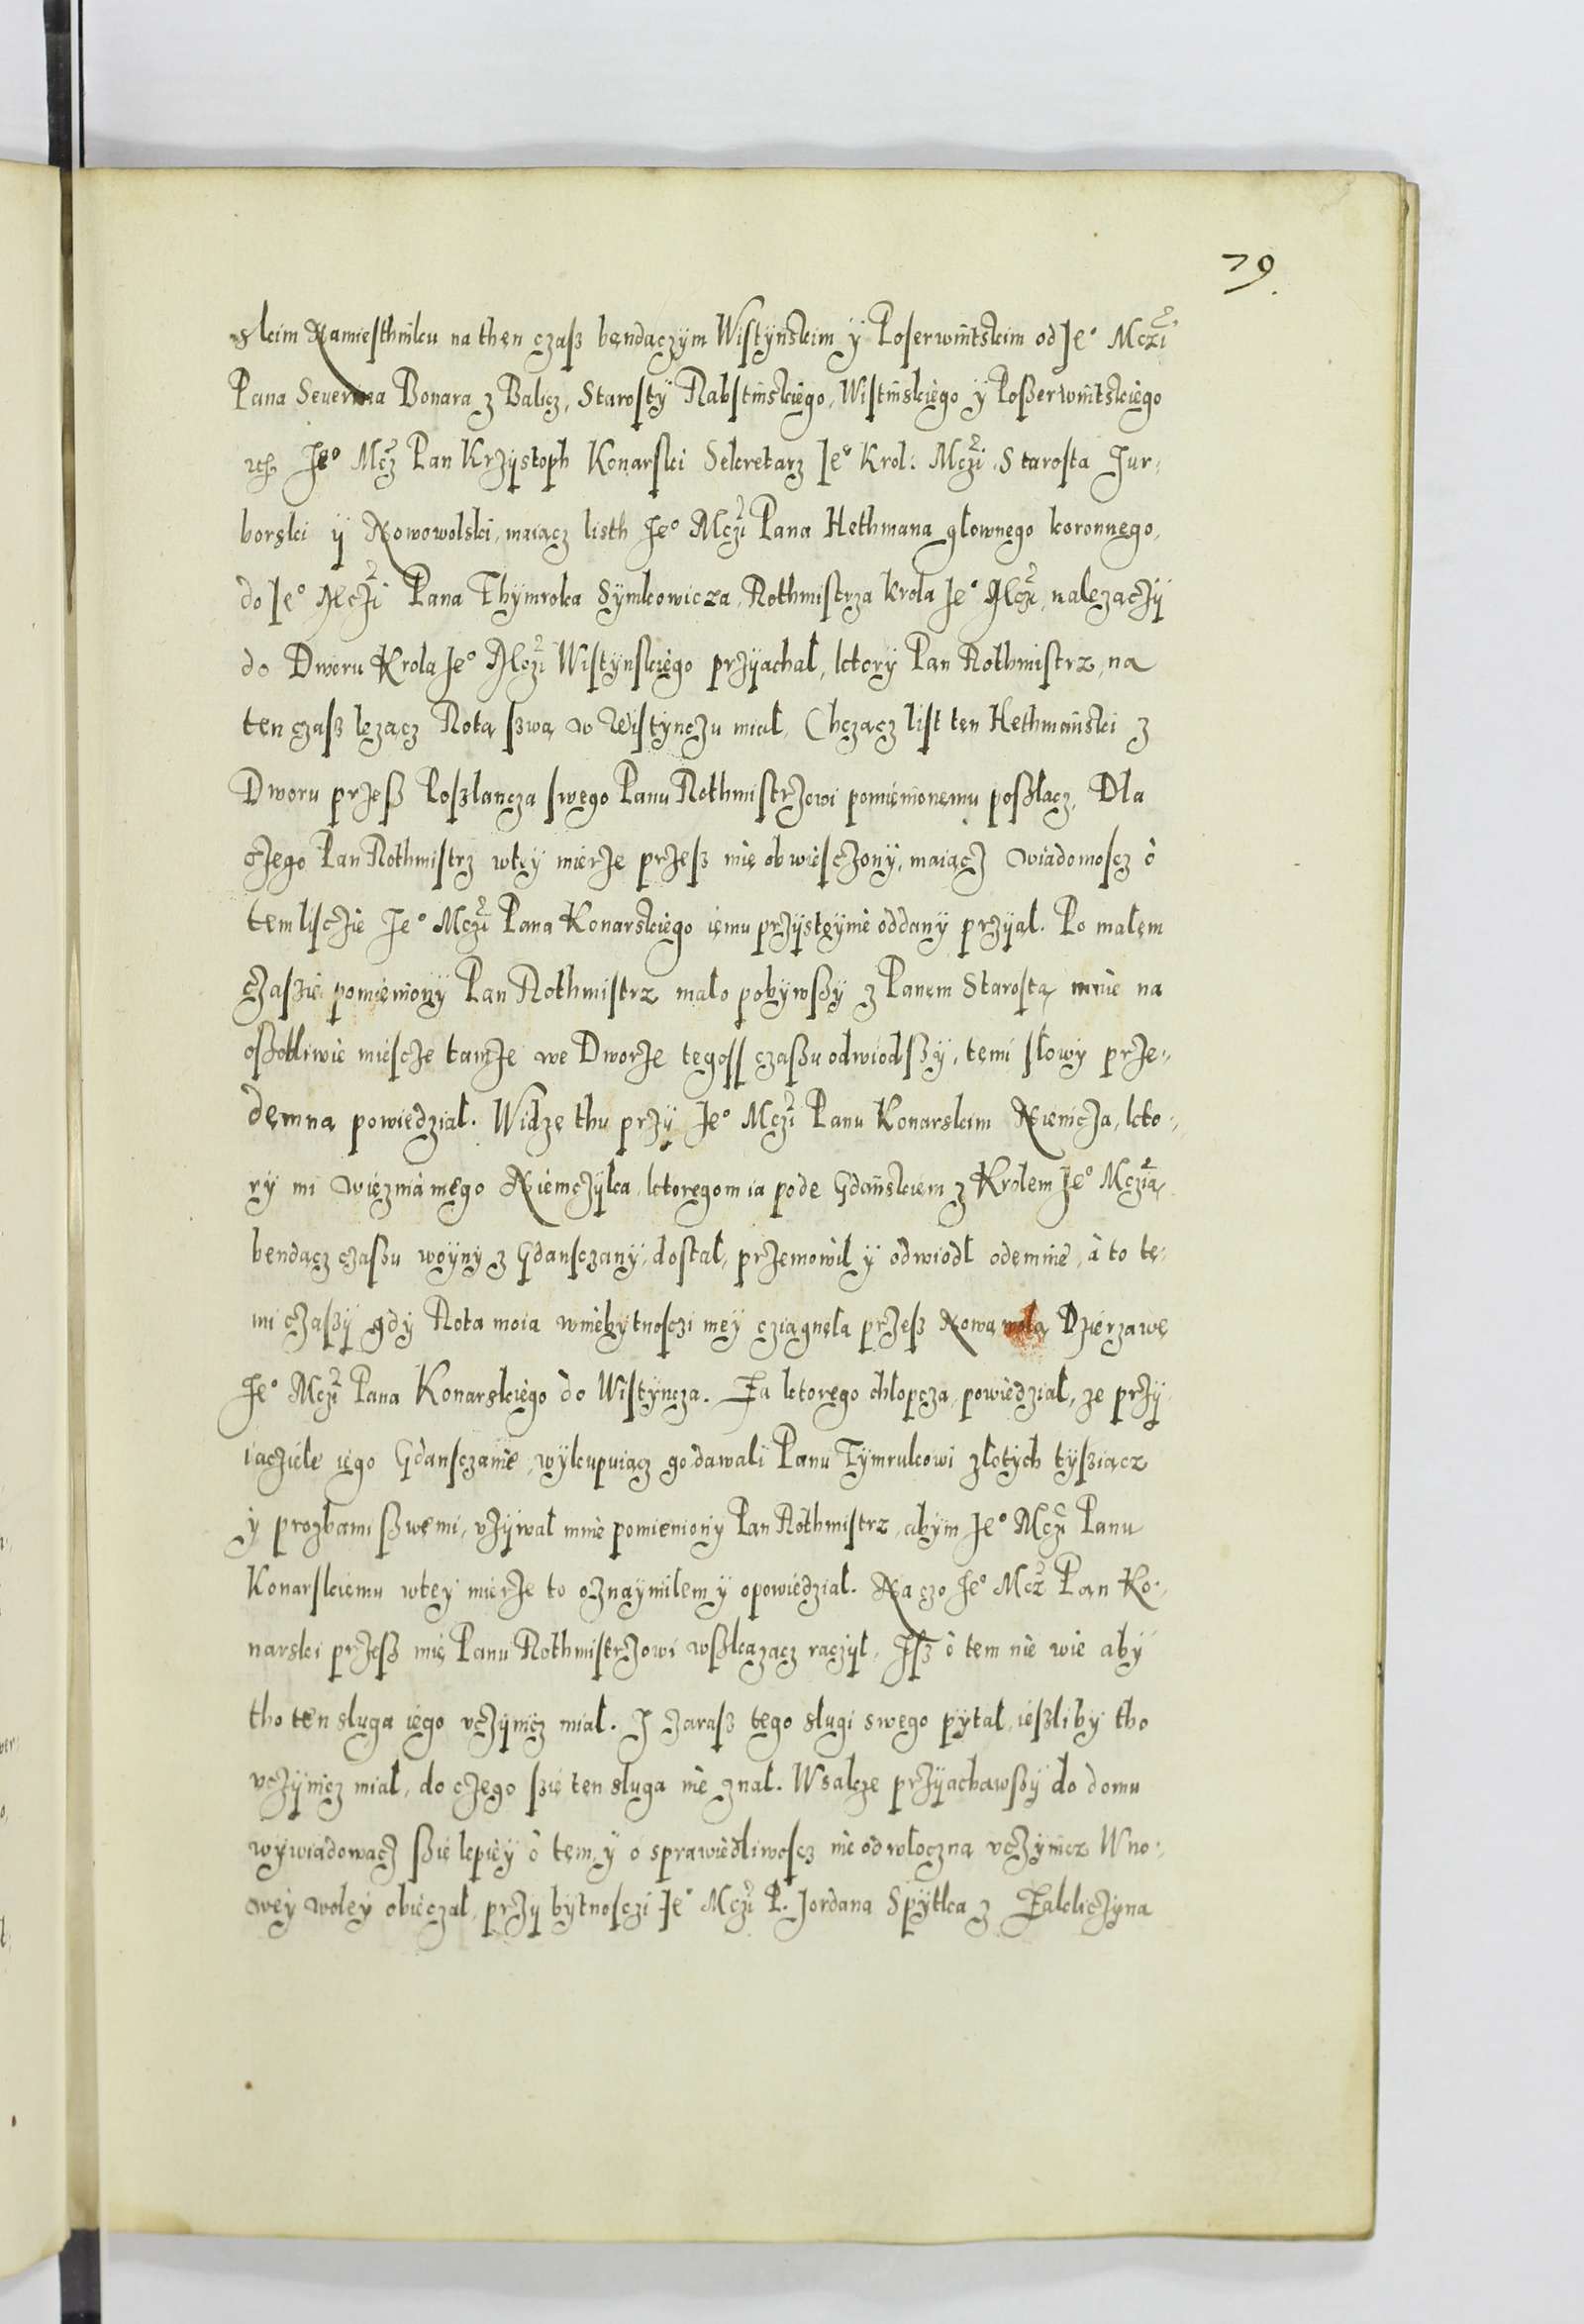 79.
skim Namiesthniku na then czasz bendaczym Wistynskim y Poserwintskim od Je° Mczi
Pana Seuerina Bonara z Balicz, Starosty Rabstinskiego, Wistinskiego y Poszerwintskiego
etc. Je° Mcz Pan Krzystoph Konarski Sekretarz Je° Krol: Mczi, Starosta Jur-
borski y Nowowolski, maiącz listh Je° Mczi Pana Hethmana głownego koronnego,
do Je° Mczi Pana Thymroka Symkowicza, Rothmistrza krola Je° Mczi, nalezączy
do Dworu Krola Je° Mczi Wistynskiego przyachał, ktory Pan Rothmistrz, na
ten czasz lezącz Rotą szwą w Wistynczu miał, Chcząc list ten Hethmański z
Dworu przesz Poszlancza swego Panu Rothmistrzowi pomienionemu poszłacz, Dla
czego Pan Rothmistrz wtey mierze przesz mię obwiesczony, maiącz wiadomoscz o
tem lisczie Je° Mczi Pana Konarskiego iemu przystoynie oddany przyał. Po małem
czaszie pomieniony Pan Rothmistrz mało pobywszy z Panem Starostą, mnie na
oszobliwie miescze tamze we Dworze tegosz czaszu odwiodszy, temi słowy prze-
demną powiedział. Widzę thu przy Je° Mczi Panu Konarskim Niemcza, kto-
ry mi więznia mego Niemczyka, ktoregom ia pode Gdańskiem z Krolem Je° Mczią
bendącz czaszu woyny z Gdansczany, dostał, przemowił y odwiodł odemnie, a to te-
mi czaszy gdy Rota moia wniebytnosczi mey cziągnęła przesz Nową wolą Dzierzawę
Je° Mczi Pana Konarskiego do Wistyncza. Za ktorego chłopcza, powiedział, ze przy
iacziele iego Gdansczanie, wykupuiącz go, dawali Panu Tymrukowi złotych tysziącz
y prozbami szwemi, vzywał mnie pomieniony Pan Rothmistrz, abym Je° Mczi Panu
Konarskiemu wtey mierze to oznaymiłem y opowiedział. Na czo Je° Mcz Pan Ko-
narski przesz mię Panu Rothmistrzowi wszkazacz raczył, Jsz o tem nie wie aby
tho ten sługa iego vczynicz miał. J zarasz tego sługi swego pytał, ieszliby tho
vczynicz miał, do czego szie ten sługa nie znał. Wsakze przyachawszy do domu
wywiadowacz szie lepiey o tem, y o sprawiedliwoscz nie odwłoczną vczynicz Wno-
wey woley obieczał, przy bytnosczi Je° Mczi P. Jordana Spytka z Zakliczyna